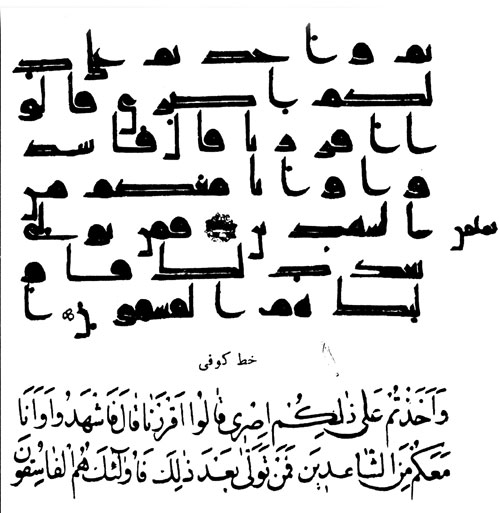 تم وا خذ تم على ذ
لكم ا صرى قا لو
ا ا قررنا قا ل فا شهد
وا وا نا معكم من
ا لشهد ين فمن تولى
بعد ذلك فا و
لئك هم ا لفسقون
خط كوفى
وَاَخَذْتُمْ عَلٰى ذٰلِكُمْ اِصْرِى قَالُوا اَقْرَرْنَا قَالَ فَاشْهَدُوا وَاَنَا
مَعَكُمْ مِنَ الشَّاهِدِينَ فَمَنْ تَوَلّٰى بَعْدَ ذٰلِكَ فَاُولٰئِكَ هُمُ الْفَاسِقُونَ